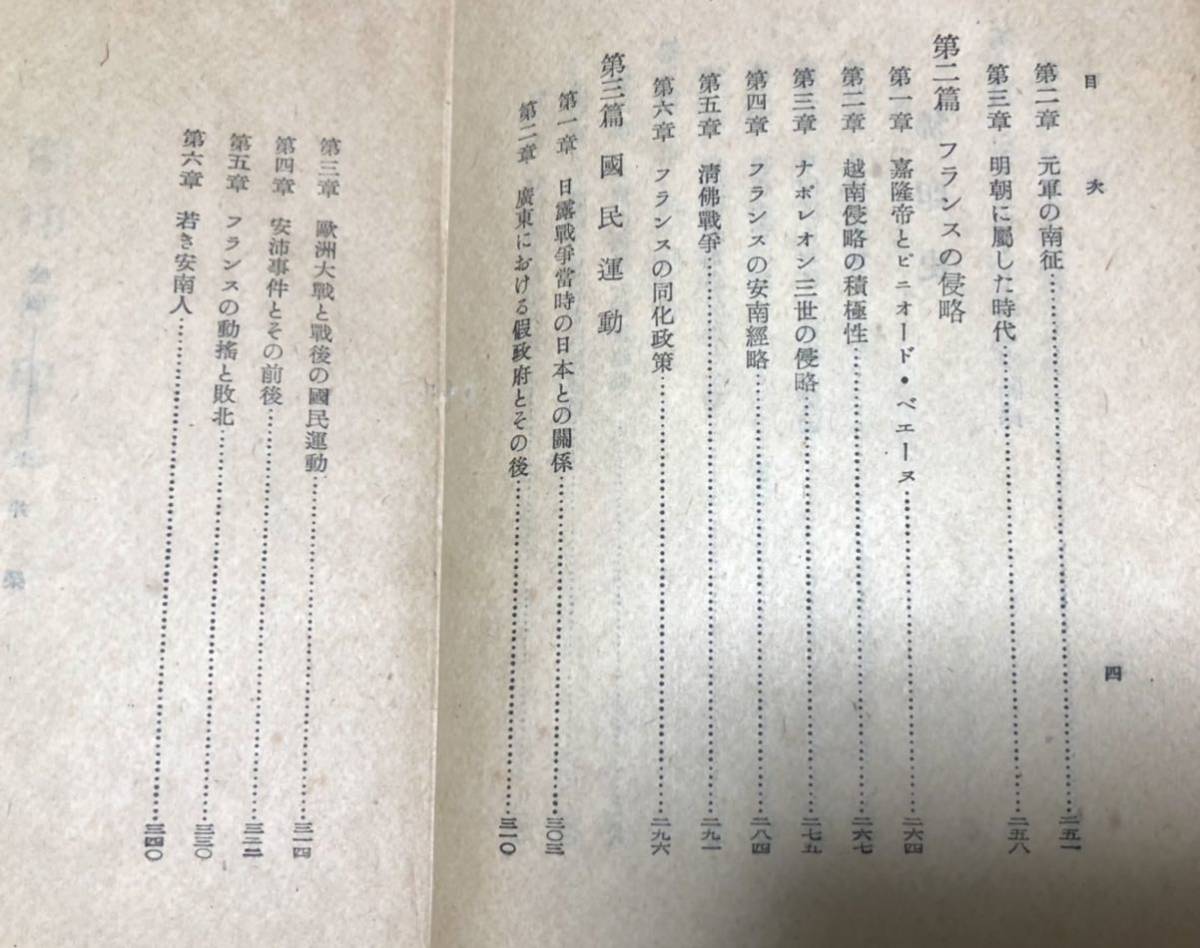 目次
四
第二章 元軍の南征……二五一
第三章 明朝に屬した時代……二五八
第二篇 フランスの侵略
第一章 嘉隆帝とピニオード・ベエーヌ……二六四
第二章 越南侵略の積極性……二六七
第三章 ナポレオン三世の侵略……二七五
第四章 フランスの安南經略……二八四
第五章 淸佛戰爭……二九一
第六章 フランスの同化政策……二九六
第三篇 國民運動
第一章 日露戰爭當時の日本との關係……三〇三
第二章 廣東における假政府とその後……三一〇
第三章 歐洲大戰と戰後の國民運動……三一四
第四章 安沛事件とその前後……三二二
第五章 フランスの動搖と敗北……三三〇
第六章 若き安南人……三四〇